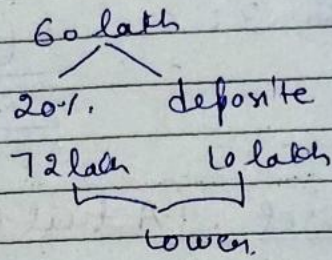 60 lakh
20%. deposite
72 lakh 10 lakh
lower.